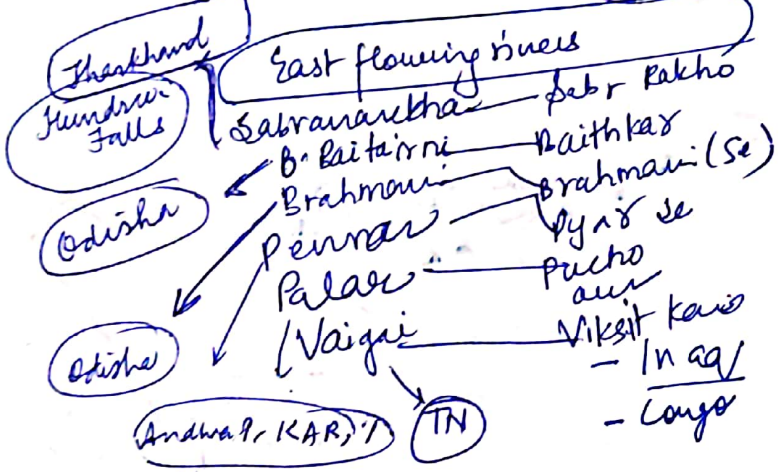 Jharkhand
East flowing rivers
Hundru Falls
Sabranarekha - Sabr Rakho
B. Baitarni - Baithkar
Brahmani - Brahmani (Se)
Odisha
Pennar - Pyar se
Palar - Pucho aur
Vaigai - Viksit Karo
Odisha
- In aq/
- Congo
Andhra P, KAR,
TN